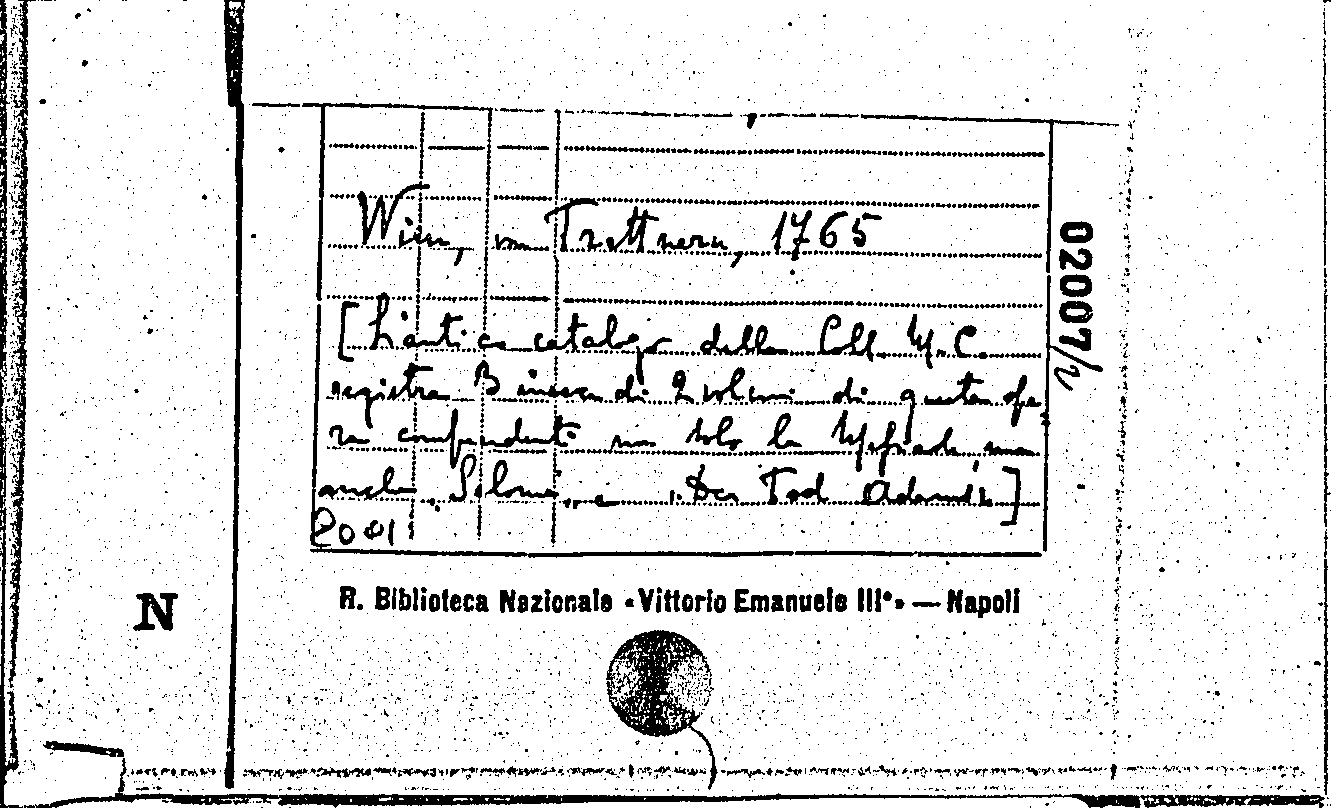 Wien, von Trattnern, 1765
[L'antico catalogo della Coll. M. C.
registra 3 invece di 2 volumi di questa ope
ra comprendenti non solo la Messiade, ma
anche "Salomo", e "Der Tod Adams"]
2001
02007/2
N
R. Biblioteca Nazionale «Vittorio Emanuele III°» — Napoli